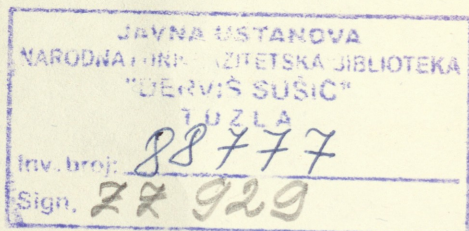 JAVNA USTANOVA
NARODNA I UNIVERZITETSKA BIBLIOTEKA
"DERVIŠ SUŠIĆ"
TUZLA
Inv. broj: 88777
Sign. ZZ 929